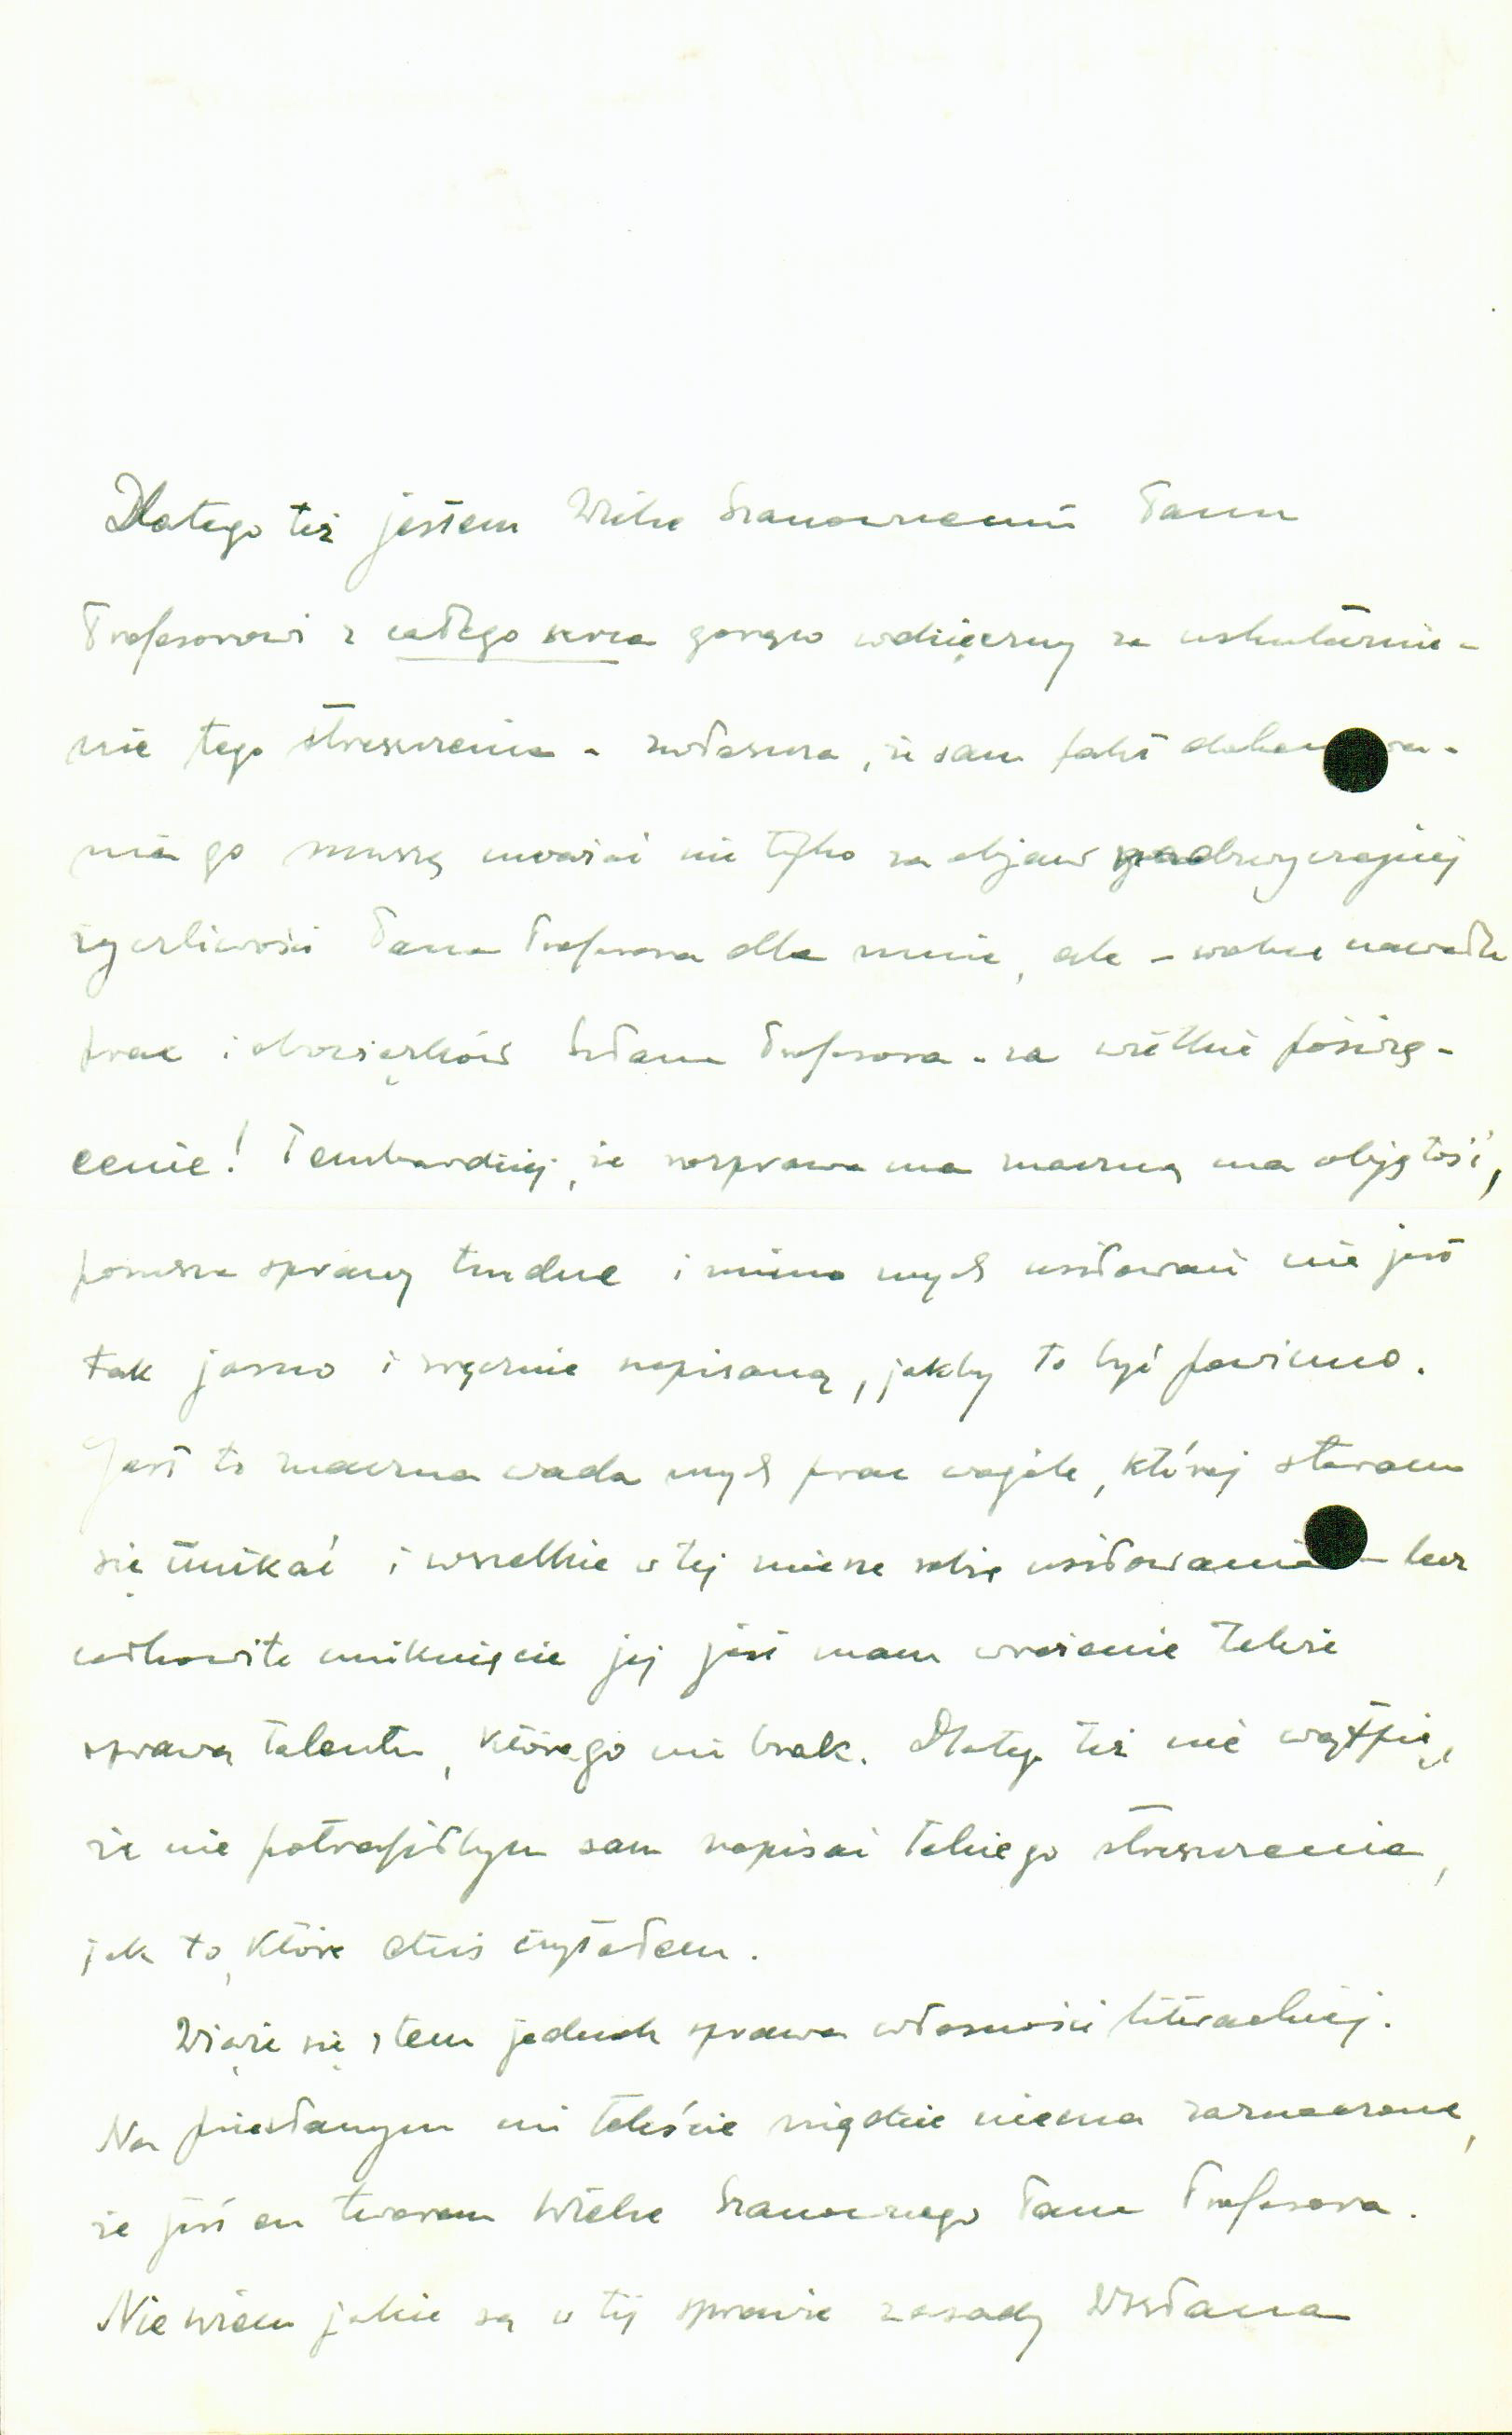 Dlatego też jestem Wielce Szanownemu Panu
Profesorowi z całego serca gorąco wdzięczny za uskutecznie-
nie tego streszczenia - zwłaszcza, że sam fakt dokonywa-
nia go muszę uważać nie tylko za objaw nadzwyczajnej
życzliwości Pana Profesora dla mnie, ale - wobec nawału
prac i obowiązków Pana Profesora - za wielkie poświę-
cenie! Tembardziej, że rozprawa ma znaczną ma objętość,
porusza sprawy trudne i mimo mych usiłowań nie jest
tak jasno i zręcznie napisaną, jakby to być powinno.
Jest to znaczna wada mych prac wogóle, której staram
się unikać i wszelkie w tej mierze robię usiłowania - lecz
całkowite uniknięcie jej jest mam wrażenie także
sprawą talentu, którego mi brak. Dlatego też nie wątpię,
że nie potrafiłbym sam napisać takiego streszczenia,
jak to, które dziś czytałem.
Wiąże się z tem jednak sprawa własności literackiej.
Na przesłanym mi tekście nigdzie niema zaznaczone,
że jest on tworem Wielce Szanownego Pana Profesora.
Nie wiem jakie są w tej sprawie zasady